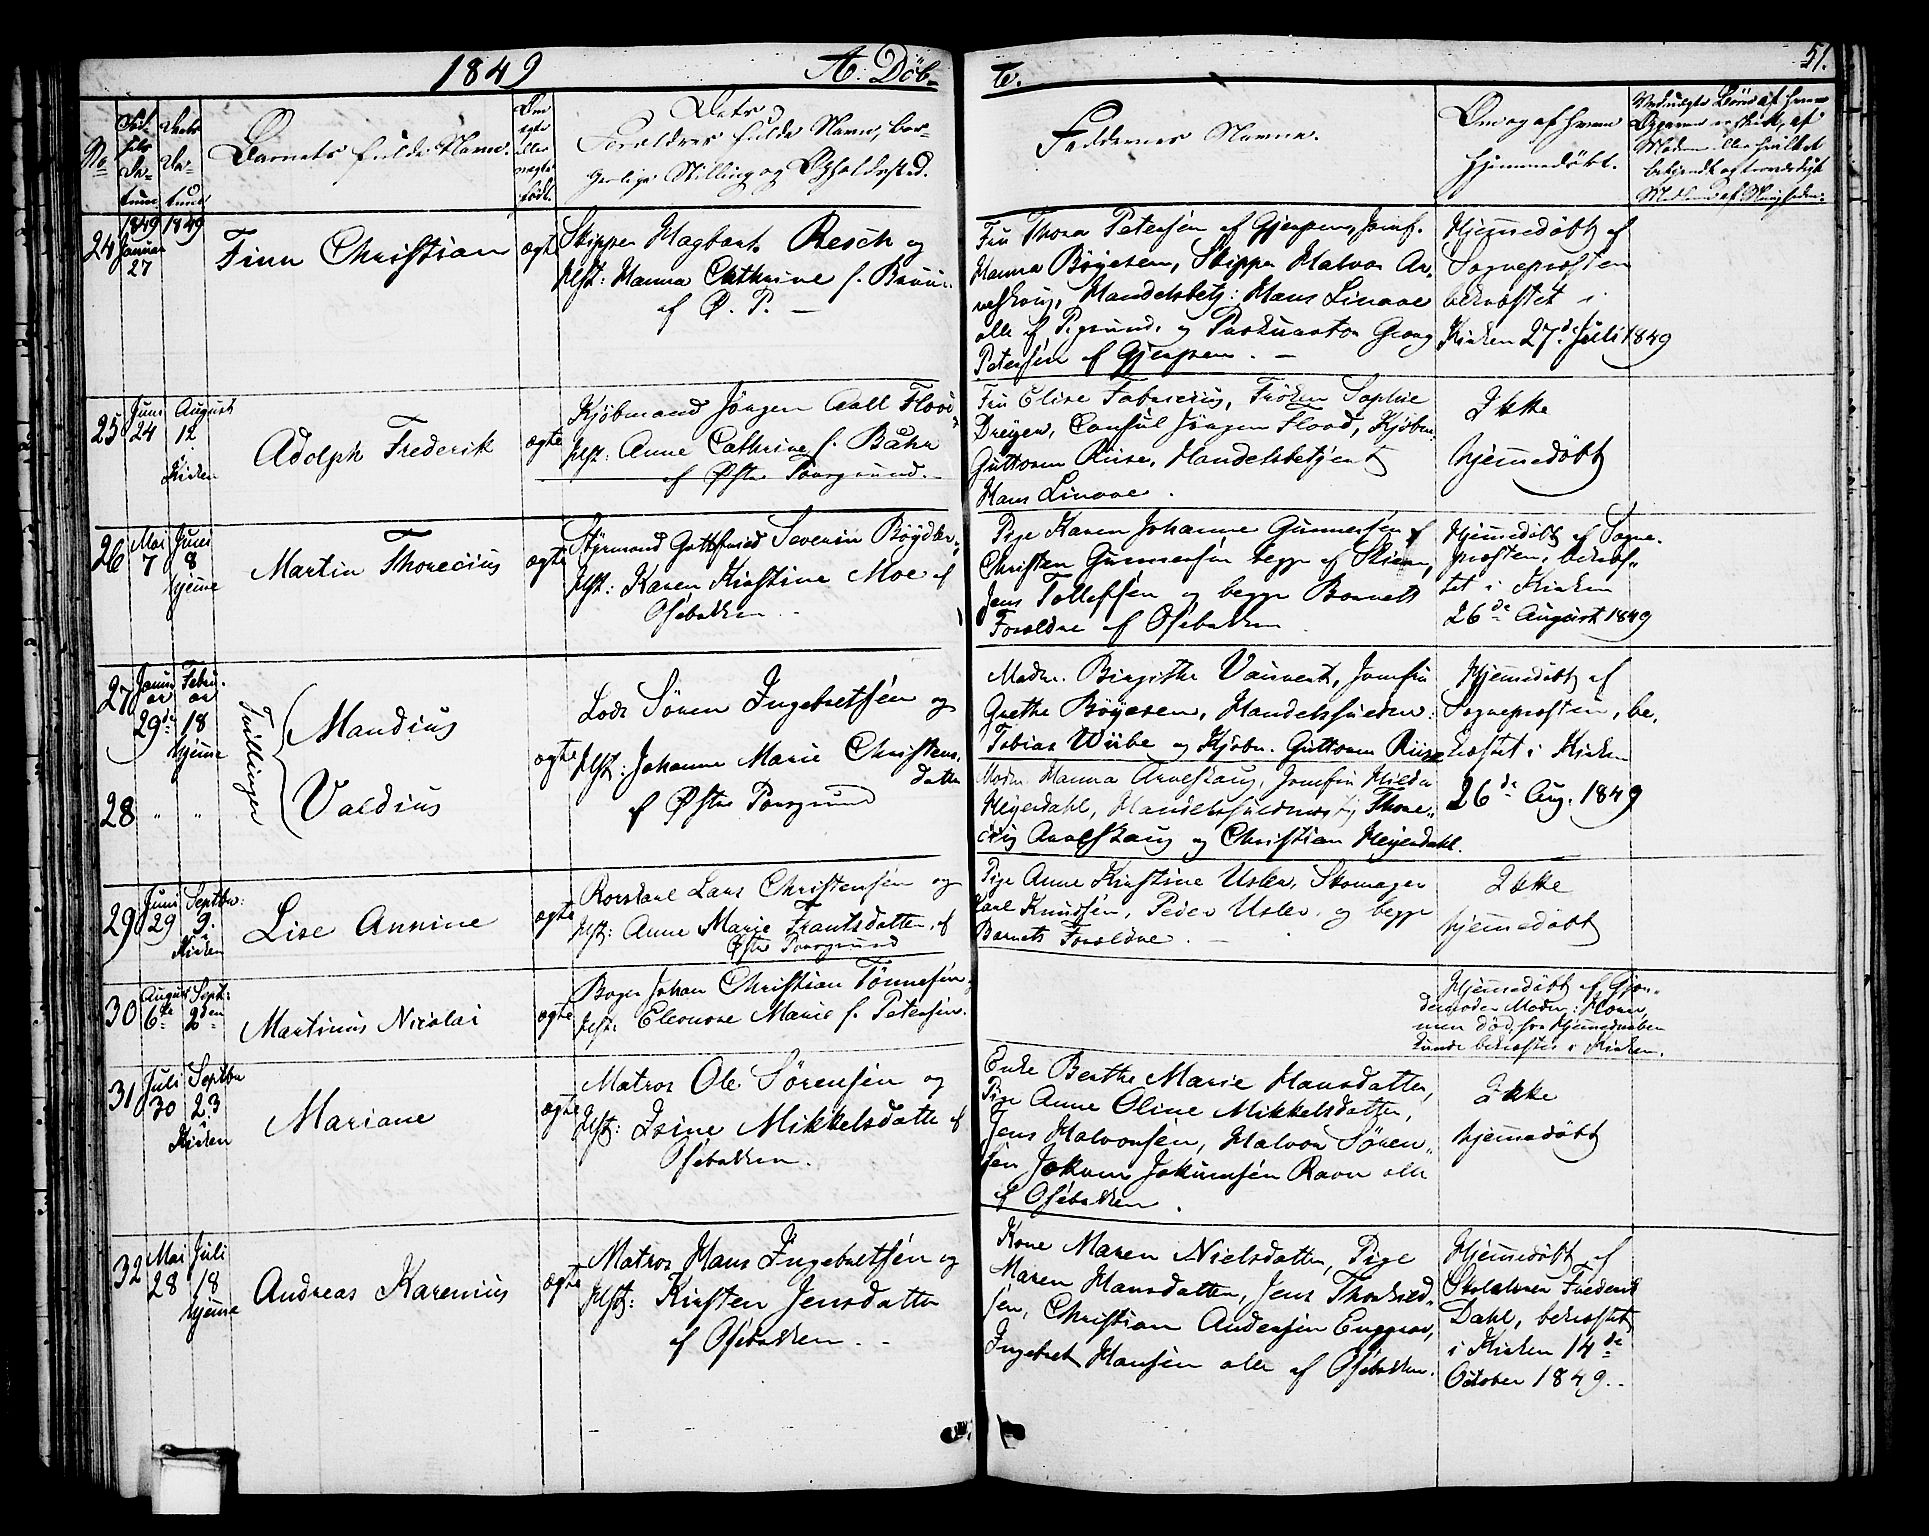 1849
A. Döb-
te.
51.
No
Fød-
sels
Da-
tum.
Daabs
Da-
tum
Barnets fulde Navn.
Om
ægte
eller
uægte
født.
Dets
Forældres fulde Navn, bor-
gerlige Stilling og Opholdssted.
Faddernes Navne.
Om og af hvem
hjemmedøbt.
1849 1849
24 Januar
27
Finn Christian
ægte
Skipper Hagbart Resch og
Hst: Hanna Cathrine f. Bruun
af Ø. P. —
Fru Thora Petersen af Gjerpen, Jomf.
Hanna Böyesen, Skipper Halvor Ar-
veskoug, Handelsbetj: Hans Linaae
alle af Pgrund. og Prokurator Georg
Petersen af Gjerpen. —
Hjemmedøbt af
Sogneprosten
bekræftet i
Kirken 27de Juli 1849
25
Juni
24
August
12
i
Kirken
Adolph Frederik
ægte
Kjöbmand Jörgen Aall Flood
Hst: Anne Cathrine f. Bähr
af Øster Porsgrund.
Fru Elise Fabricius, Fröken Sophie
Dreyer, Consul Jörgen Flood, Kjöbm.
Guttorm Riise, Handelsbetjent
Hans Linaae.
Ikke
hjemmedöbt
26
Mai
7
Juni
8
hjemme
Martin Thorecius
ægte
Styrmand Gottfried Severin Böyder
Hst: Karen Kirstine Moe af
Osebakken.
Pige Karen Johanne Gunnersen af
Christen Gunnersen begge af Skien,
Jens Tollefsen og begge Barnets
Forældre af Osebakken.
Hjemmedøbt af Sogne-
prosten, bekræf-
tet i Kirken
26de August 1849
27
Januar
29de
Febru-
ar
18
hjemme
Tvillinger
Mandius
28 " "
Valdius
ægte
Lods Sören Ingebretsen og
Hst: Johanne Marie Christens-
datter
af Øster Porsgrund
Madm. Birgithe Vauvert, Jomfru
Grethe Böyesen, Handelsfuldm:
Tobias Wiibe og Kjöbm. Guttorm Riise
Madm Hanna Arveskaug, Jomfru Hilda
Heyerdahl, Handelsfuldmægtig Thore-
Arveskaug og Christian Heyerdahl.
Hjemmedøbt af
Sogneprosten, be-
kræftet i Kirken
26de Aug. 1849
29
Juni
29
Septbr:
9.
Kirken
Lise Annine
ægte
Rorskarl Lars Christensen og
Hst: Anne Marie Frantsdatter, af
Øster Porsgrund
Pige Anne Kirstine Usler, Skomager
Carl Knudsen, Peder Usler, og begge
Barnets Forældre.
Ikke
hjemmedöbt
30
August
6te
Sept:
2den
Martinus Nicolai
ægte
Bager Johan Christian Tönnesen,
Hst: Eleonore Marie f. Petersen.
Hjemmedøbt af Gjor-
demoder Madm: Horn,
men död, för Hjemmedaaben
kunde bekræftes i Kirken.
31
Juli
30
Septbr
23
i
Kirken
Mariane
ægte
Matros Ole Sörensen og
Hst: Isine Mikkelsdatter af
Osebakken.
Enke Berthe Marie Hansdatter,
Pige Anne Oline Mikkelsdatter,
Jens Halvorsen, Halvor Sören-
sen Jokum Jokumsen Ravn alle
af Osebakken.
Ikke
hjemmedöbt
32
Mai
28
Juli
18
hjemme
Andreas Karenius
ægte
Matros Hans Ingebretsen og
Hst: Kirsten Jensdatter
af Osebakken. —
Kone Maren Nielsdatter, Pige
Maren Hansdatter, Jens Thorkild-
sen, Christian Andersen Enggrav,
Ingebret Hansen alle af Osebakken.
Hjemmedøbt af
Skolelærer Frederik
Dahl, bekræftet
i Kirken 14de
October 1849.